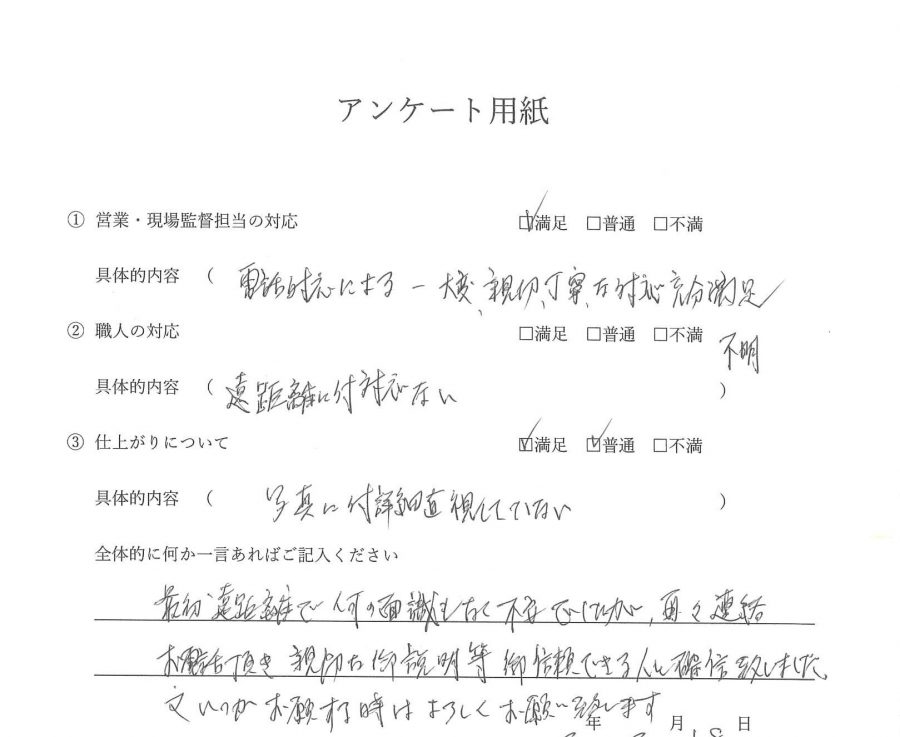 アンケート用紙
① 営業・現場監督担当の対応 ☑満足 □普通 □不満
具体的内容 ( 電話対応による ー 大変、親切、丁寧、な対応充分満足
② 職人の対応 □満足 □普通 □不満 不明
具体的内容 ( 遠距離に付対応ない )
③ 仕上がりについて ☑満足 ☑普通 □不満
具体的内容 ( 写真に付詳細直視していない )
全体的に何か一言あればご記入ください
最初遠距離で何の面識もなく不安でしたが、再々連絡
お電話頂き親切な御説明等御信頼できる人と確信致しました。
又いつかお願する時はよろしくお願い致します
年 月 日